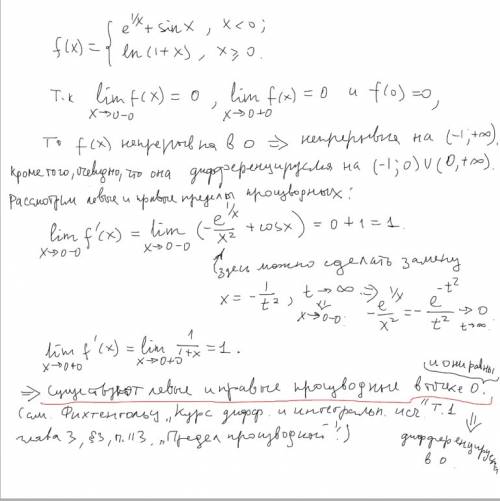 f(x) = { e^{1/x} + sin x , x < 0;
ln(1+x) , x ⩾ 0.
Т.к lim_{x→0-0} f(x) = 0 , lim_{x→0+0} f(x) = 0 и f(0) = 0,
То f(x) непрерывна в 0 ⇒ непрерывна на (-1, +∞).
Кроме того, очевидно, что она дифференцируема на (-1; 0) ∪ (0, +∞).
Рассмотрим левые и правые пределы производных:
lim_{x→0-0} f'(x) = lim_{x→0-0} (-e^{1/x}/x² + cos x) = 0 + 1 = 1.
(здесь можно сделать замену
x = -1/t² , t → ∞ ⇒ -e^{1/x}/x² = -e^{-t²}/t² → 0
x→0-0. t→∞
lim_{x→0+0} f'(x) = lim_{x→0+0} 1/(1+x) = 1.
и они равны
⇒ существуют левые и правые производные в точке 0.
(см. Фихтенгольц „Курс дифф. и интегральн. исч." т. 1
глава 3, §3, п. 113 „Предел производной"!)
⇓
дифференцируема
в 0